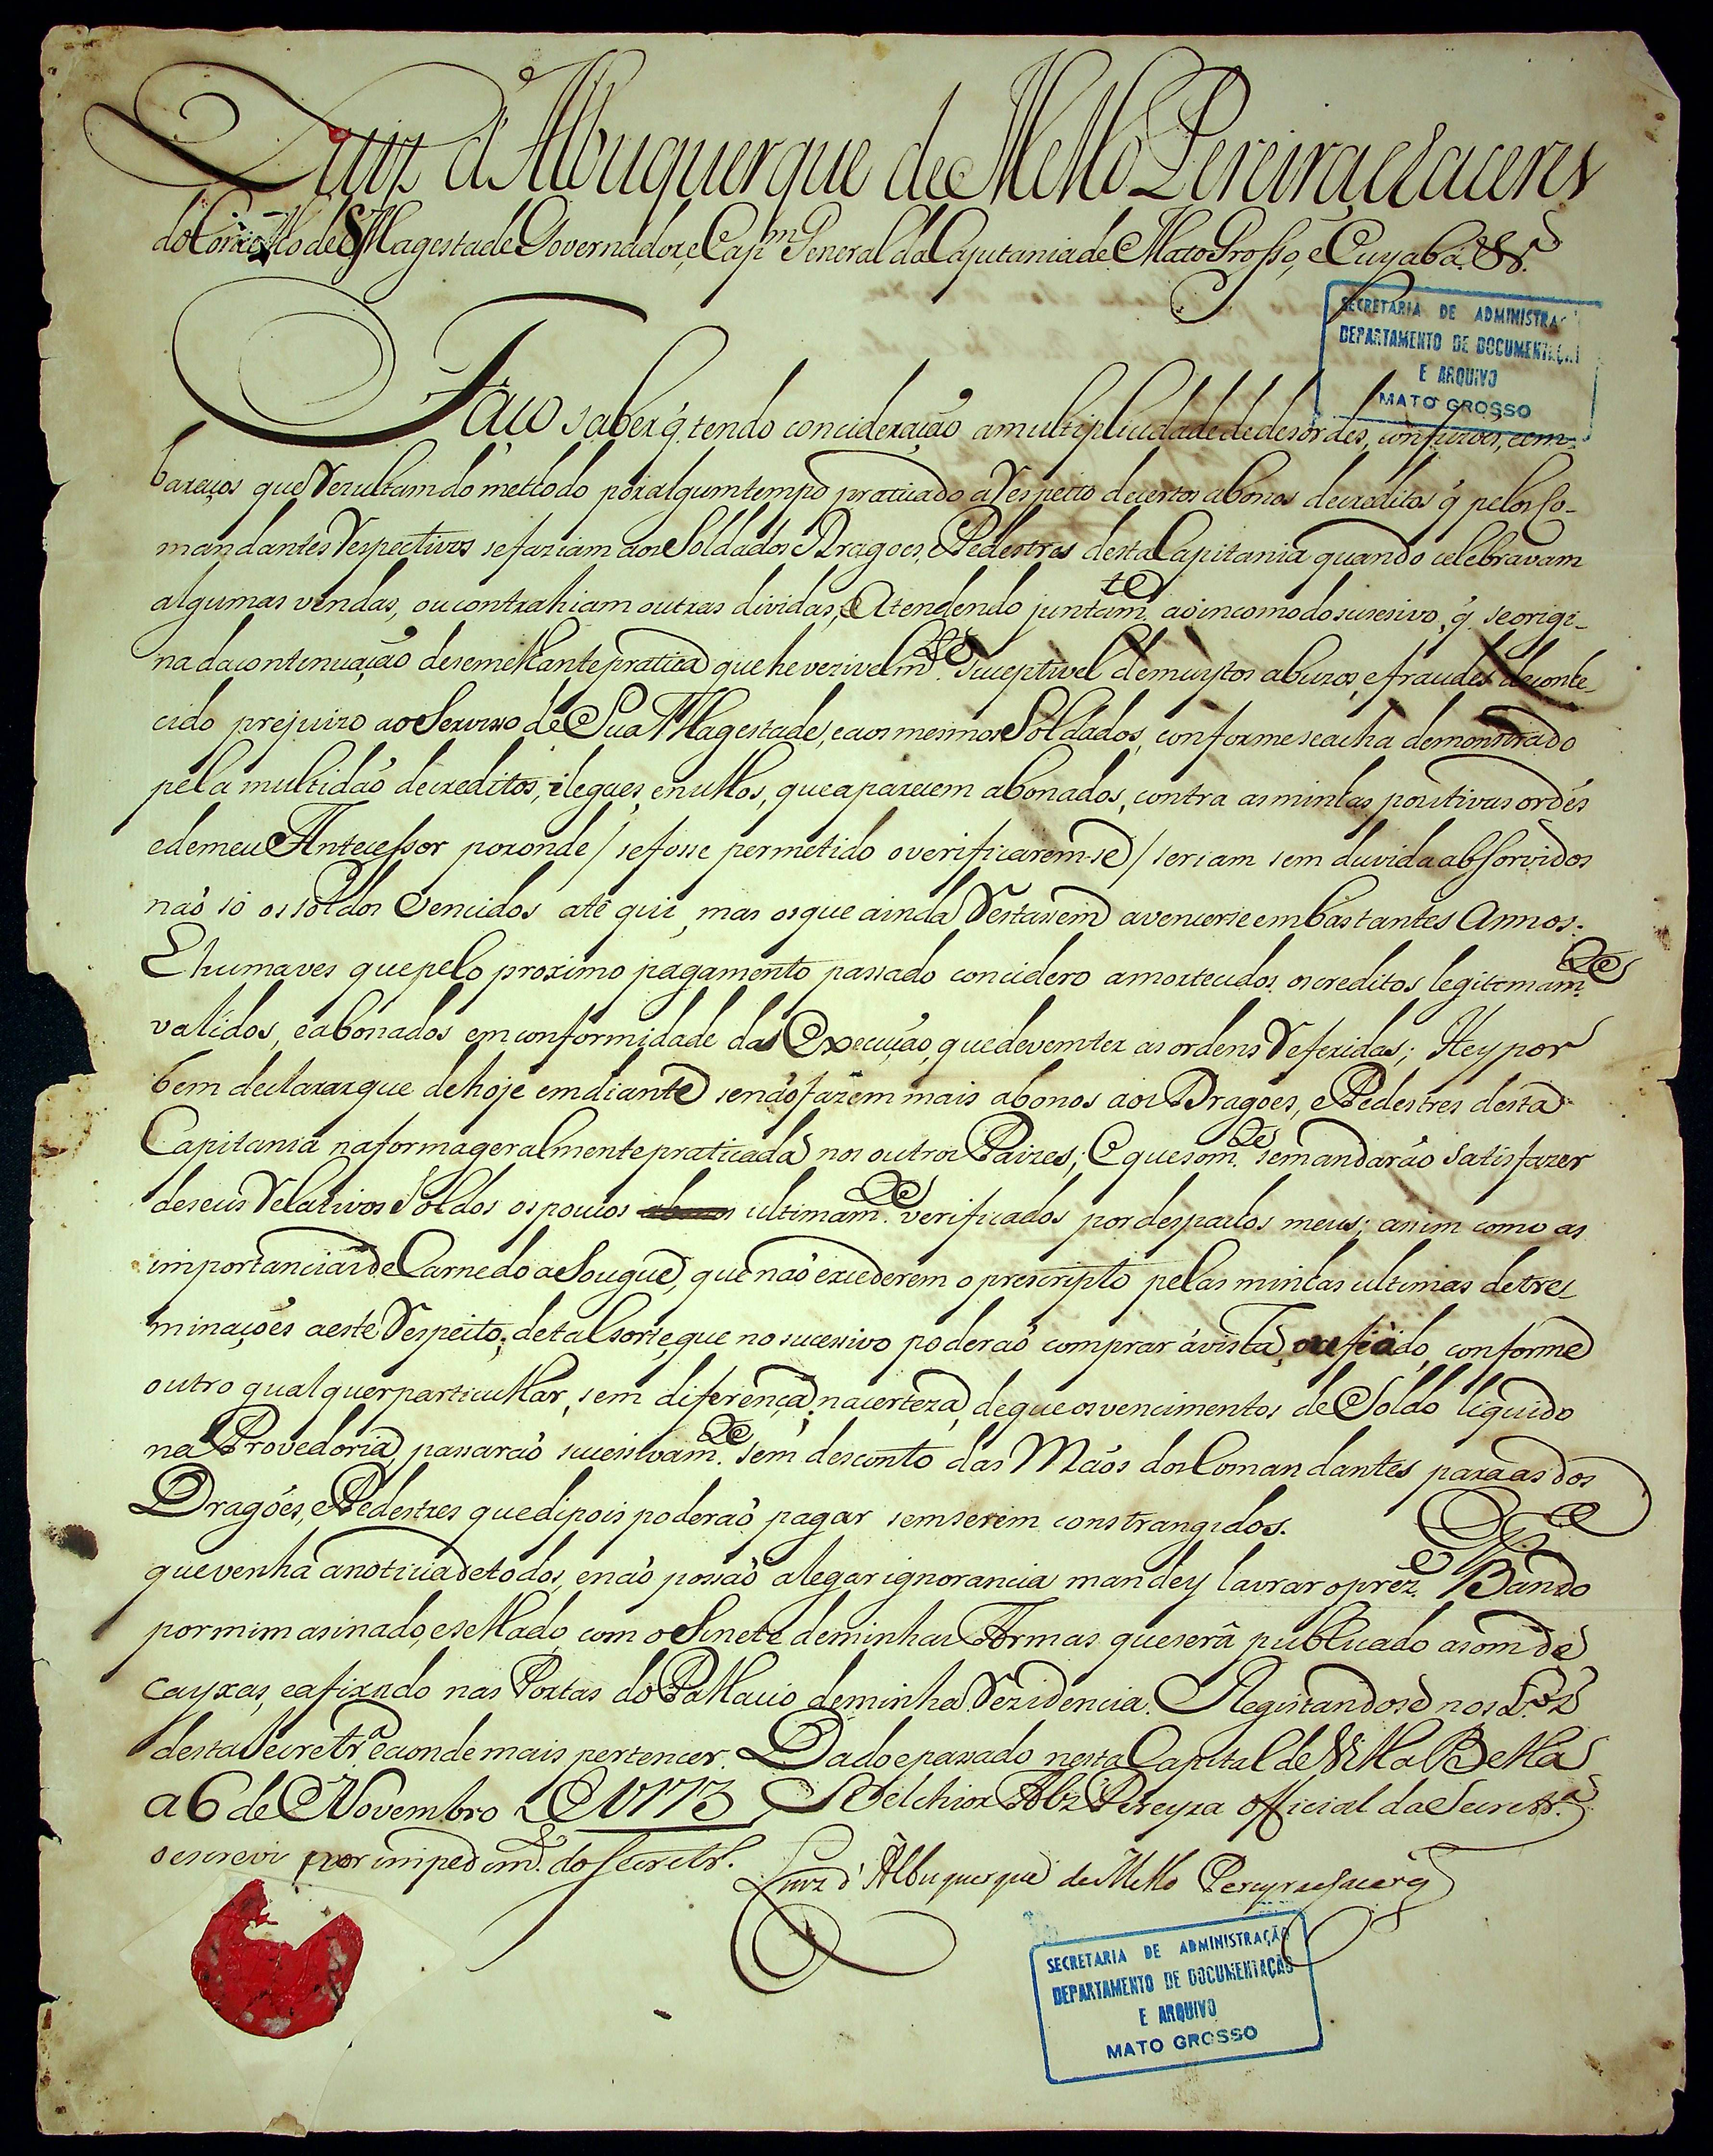 Luiz d'Albuquerque de Mello Pereira, e Caceres
do Concelho de S Magestade Governador, e Cap.m General da Capitania de Mato Grosso, e Cuyabá. &.ª
SECRETARIA DE ADMINISTRAÇ
DEPARTAMENTO DE DOCUMENTAÇÃ
E ARQUIVO
MATO GROSSO
Faço saber q̃. tendo concideração a multiplicidade de desordẽs, confuzoẽs, e em-
baraços que Rezultam do methodo por algum tempo praticado a Respeito de certos abonos de creditos q̃ pelos Co-
mandantes Respectivos se faziam aos Soldados Dragoes, e Pedestres desta Capitania quando celebravam
algumas vendas, ou contrahiam outras dividas; e Atendendo juntam.te ao incomodo sucesivo, q̃ se origi-
na da continuação de semelhante pratica que he verivelm.te suceptivel de muytos abuzos, e fraudes de conhe-
cido prejuizo ao Serviso de Sua Magestade, e aos mesmos Soldados, conforme se acha demonstrado
pela multidão de creditos, ilegaes, e nullos, que aparecem abonados, contra as minhas pozitivas ordẽs
e de meu Antecessor por onde / se fosse permetido o verificarem-se / seriam sem duvida absorvidos
não só os soldos Vencidos até qui, mas os que ainda Restassem a vencerse em bastantes Annos.
E huma ves que pelo proximo pagamento passado concidero amortecidos os creditos legitimam.te
validos, e abonados em conformidade da Execução, que devem ter as ordens Referidas; Hey por
bem declarar que de hoje em diante se não fazem mais abonos aos Dragões, e Pedestres desta
Capitania na forma geralmente praticada nos outros Paizes; E que som.te se mandarão satisfazer
de seus Relativos Soldos os poucos ultimam.te verificados por despachos meus; asim como as
importancias de Carne do asougue, que não excederem o prescripto pelas minhas ultimas detres
minações a este Respeito; de tal sorte, que no sucessivo poderaõ comprar á vista, ou fiado, conforme
outro qualquer particullar, sem diferença, na certeza, de que os vencimentos de Soldo liquido
na Provedoria, passaraõ sucesivam.te sem desconto das Mãos dos Comandantes para as dos
Dragões, e Pedestres que dipois poderaõ pagar sem serem constrangidos. E p.ª
que venha a noticia de todos, e naõ possaõ alegar ignorancia mandey lavrar o prez.e Bando
por mim asinado, e sellado com o Sinete de minhas Armas que será publicado a som de
cayxas, e afixado nas Portas do Pallacio de minha Rezidencia. Registandose nos L.os
desta Secretr.ª e aonde mais pertencer. Dado e passado nesta Capital de Villa Bella
a 6 de Novembro de 1773 Belchior Alz̃ Pereyra official da Secretr.ª
o escrevi por impedim.to do Secretr.º
Luiz d'Albuquerque de Mello Pereyra e Caceres
SECRETARIA DE ADMINISTRAÇÃO
DEPARTAMENTO DE DOCUMENTAÇÃO
E ARQUIVO
MATO GROSSO